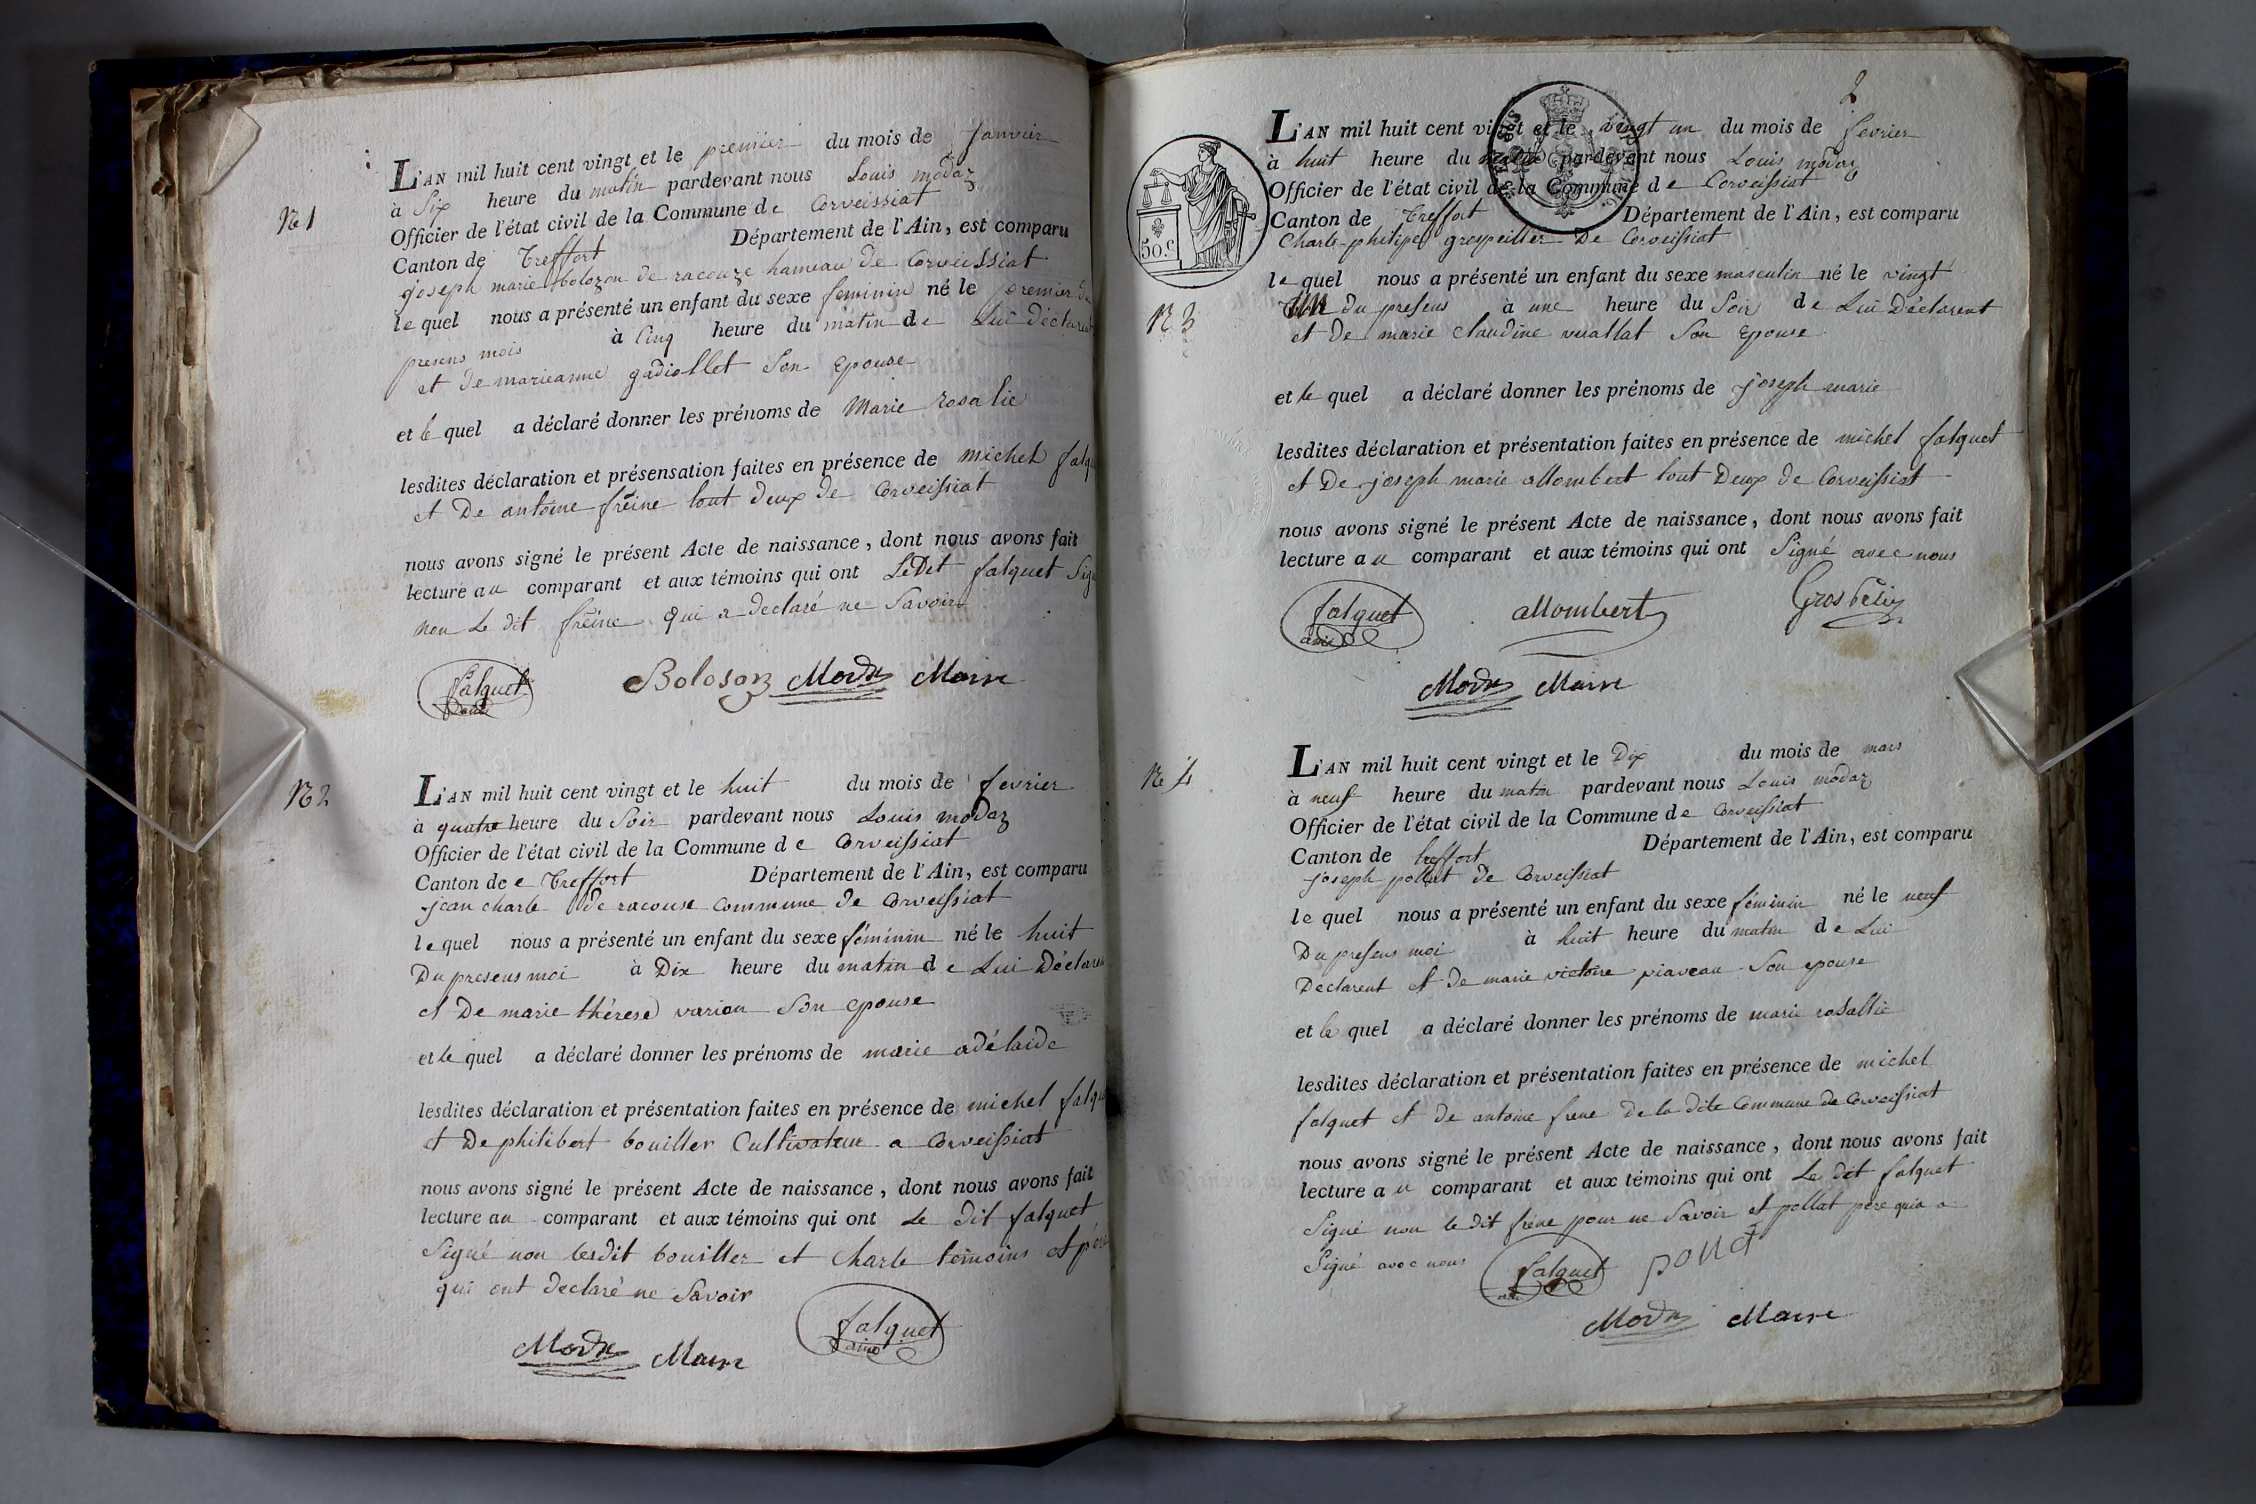 N 1
L'AN mil huit cent vingt et le premier du mois de janvier
à Six heure du matin pardevant nous Louis modaz
Officier de l'état civil de la Commune de Corveissiat
Canton de Treffort Département de l'Ain, est comparu
joseph marie bolozon de racouze hameau de Corveissiat
lequel nous a présenté un enfant du sexe feminin né le premier du
presens mois à Cinq heure du matin de Lui déclarent
et de marieanne gadiollet Son Epouse
et le quel a déclaré donner les prénoms de Marie rosalie
lesdites déclaration et présensation faites en présence de michel falqu
et De antoine freine tout deux de Corveissiat
nous avons signé le présent Acte de naissance, dont nous avons fait
lecture au comparant et aux témoins qui ont LeDit falquet Sign
non Le dit freine qui a declaré ne Savoir
falquet Boloson Modas Maire
N 2
L'AN mil huit cent vingt et le huit du mois de fevrier
à quatre heure du Soir pardevant nous Louis modaz
Officier de l'état civil de la Commune de Corveissiat
Canton de e Treffort Département de l'Ain, est comparu
jean charle de racouse commune de Corveissiat
lequel nous a présenté un enfant du sexe féminin né le huit
Du presens moi à Dix heure du matin de Lui Déclaren
et De marie thérese varion Son epouse
et le quel a déclaré donner les prénoms de marie adélaide
lesdites déclaration et présentation faites en présence de michel falqu
et De philibert bouiller Cultivateur a Corveissiat
nous avons signé le présent Acte de naissance, dont nous avons fait
lecture au comparant et aux témoins qui ont Le dit falquet
Signé non lesdit bouiller et charle temoins et père
qui ont declaré ne Savoir
falquet
Modas Maire
2
50 c
N 3
L'AN mil huit cent vingt et le vingt un du mois de fevrier
à huit heure du matin pardevant nous Louis modaz
Officier de l'état civil de la Commune de Corveissiat
Canton de Treffort Département de l'Ain, est comparu
Charle-philipe grospeiller De Corveissiat
lequel nous a présenté un enfant du sexe masculin né le vingt
un du presens à une heure du Soir de Lui Déclarent
et De marie Claudine verallat Son Epouse
et le quel a déclaré donner les prénoms de joseph marie
lesdites déclaration et présentation faites en présence de michel falquet
et De joseph marie allombert tout Deux de Corveissiat
nous avons signé le présent Acte de naissance, dont nous avons fait
lecture au comparant et aux témoins qui ont Signé avec nous
falquet allombert
Modas Maire
N 4
L'AN mil huit cent vingt et le Dix du mois de mars
à neuf heure du matin pardevant nous Louis modaz
Officier de l'état civil de la Commune de Corveissiat
Canton de treffort Département de l'Ain, est comparu
joseph pollat de Corveissiat
lequel nous a présenté un enfant du sexe féminin né le neuf
Du presens moi à huit heure du matin de Lui
Declarent et De marie victoire viaveau Son epouse
et le quel a déclaré donner les prénoms de marie rosallie
lesdites déclaration et présentation faites en présence de michel
falquet et de antoine frene de la dite Commune de Corveissiat
nous avons signé le présent Acte de naissance, dont nous avons fait
lecture au comparant et aux témoins qui ont Le dit falquet
Signé non le dit frène pour ne Savoir et pollat père qui a
Signé avec nous falquet
Modas Maire